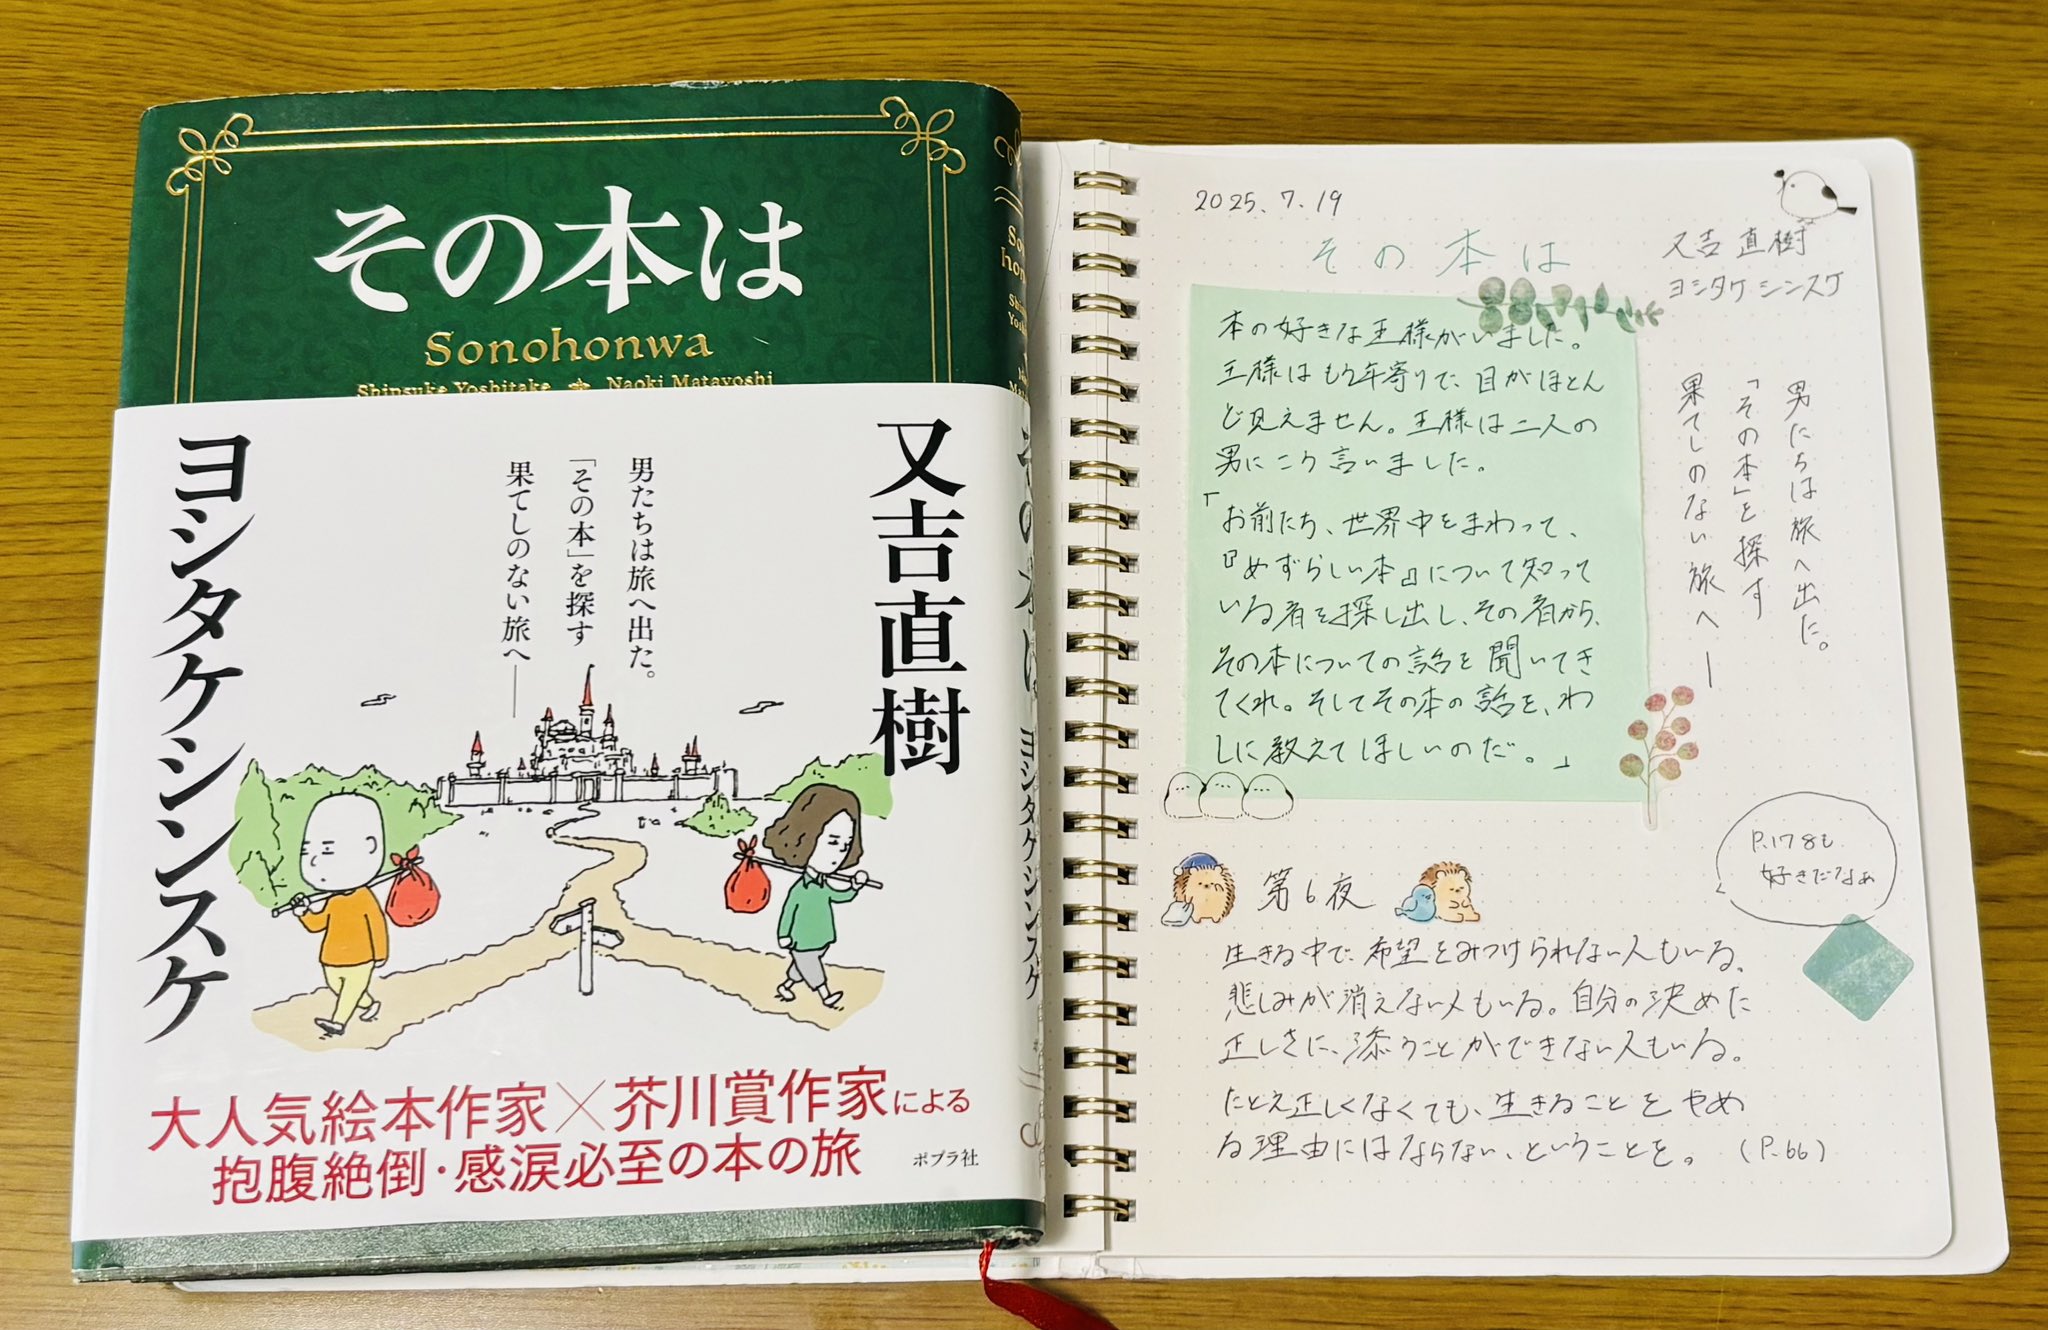 その本は
Sonohonwa
Shinsuke Yoshitake Naoki Matayoshi
又吉直樹
男たちは旅へ出た。
「その本」を探す
果てしのない旅へ――
ヨシタケシンスケ
大人気絵本作家×芥川賞作家による
抱腹絶倒・感涙必至の本の旅
ポプラ社
ヨシタケシンスケ
2025.7.19
その本は
又吉直樹
ヨシタケシンスケ
本の好きな王様がいました。
王様はもう年寄りで、目がほとん
ど見えません。王様は二人の
男にこう言いました。
「お前たち、世界中をまわって、
『めずらしい本』について知って
いる者を探し出し、その者から、
その本についての話を聞いてき
てくれ。そしてその本の話を、わ
しに教えてほしいのだ。」
男たちは旅へ出た。
「その本」を探す
果てしのない旅へ―
P.178も
好きだなぁ
第6夜
生きる中で、希望をみつけられない人もいる、
悲しみが消えない人もいる。自分の決めた
正しさに、添うことができない人もいる。
たとえ正しくなくても、生きることをやめ
る理由にはならない、ということを。(P.66)